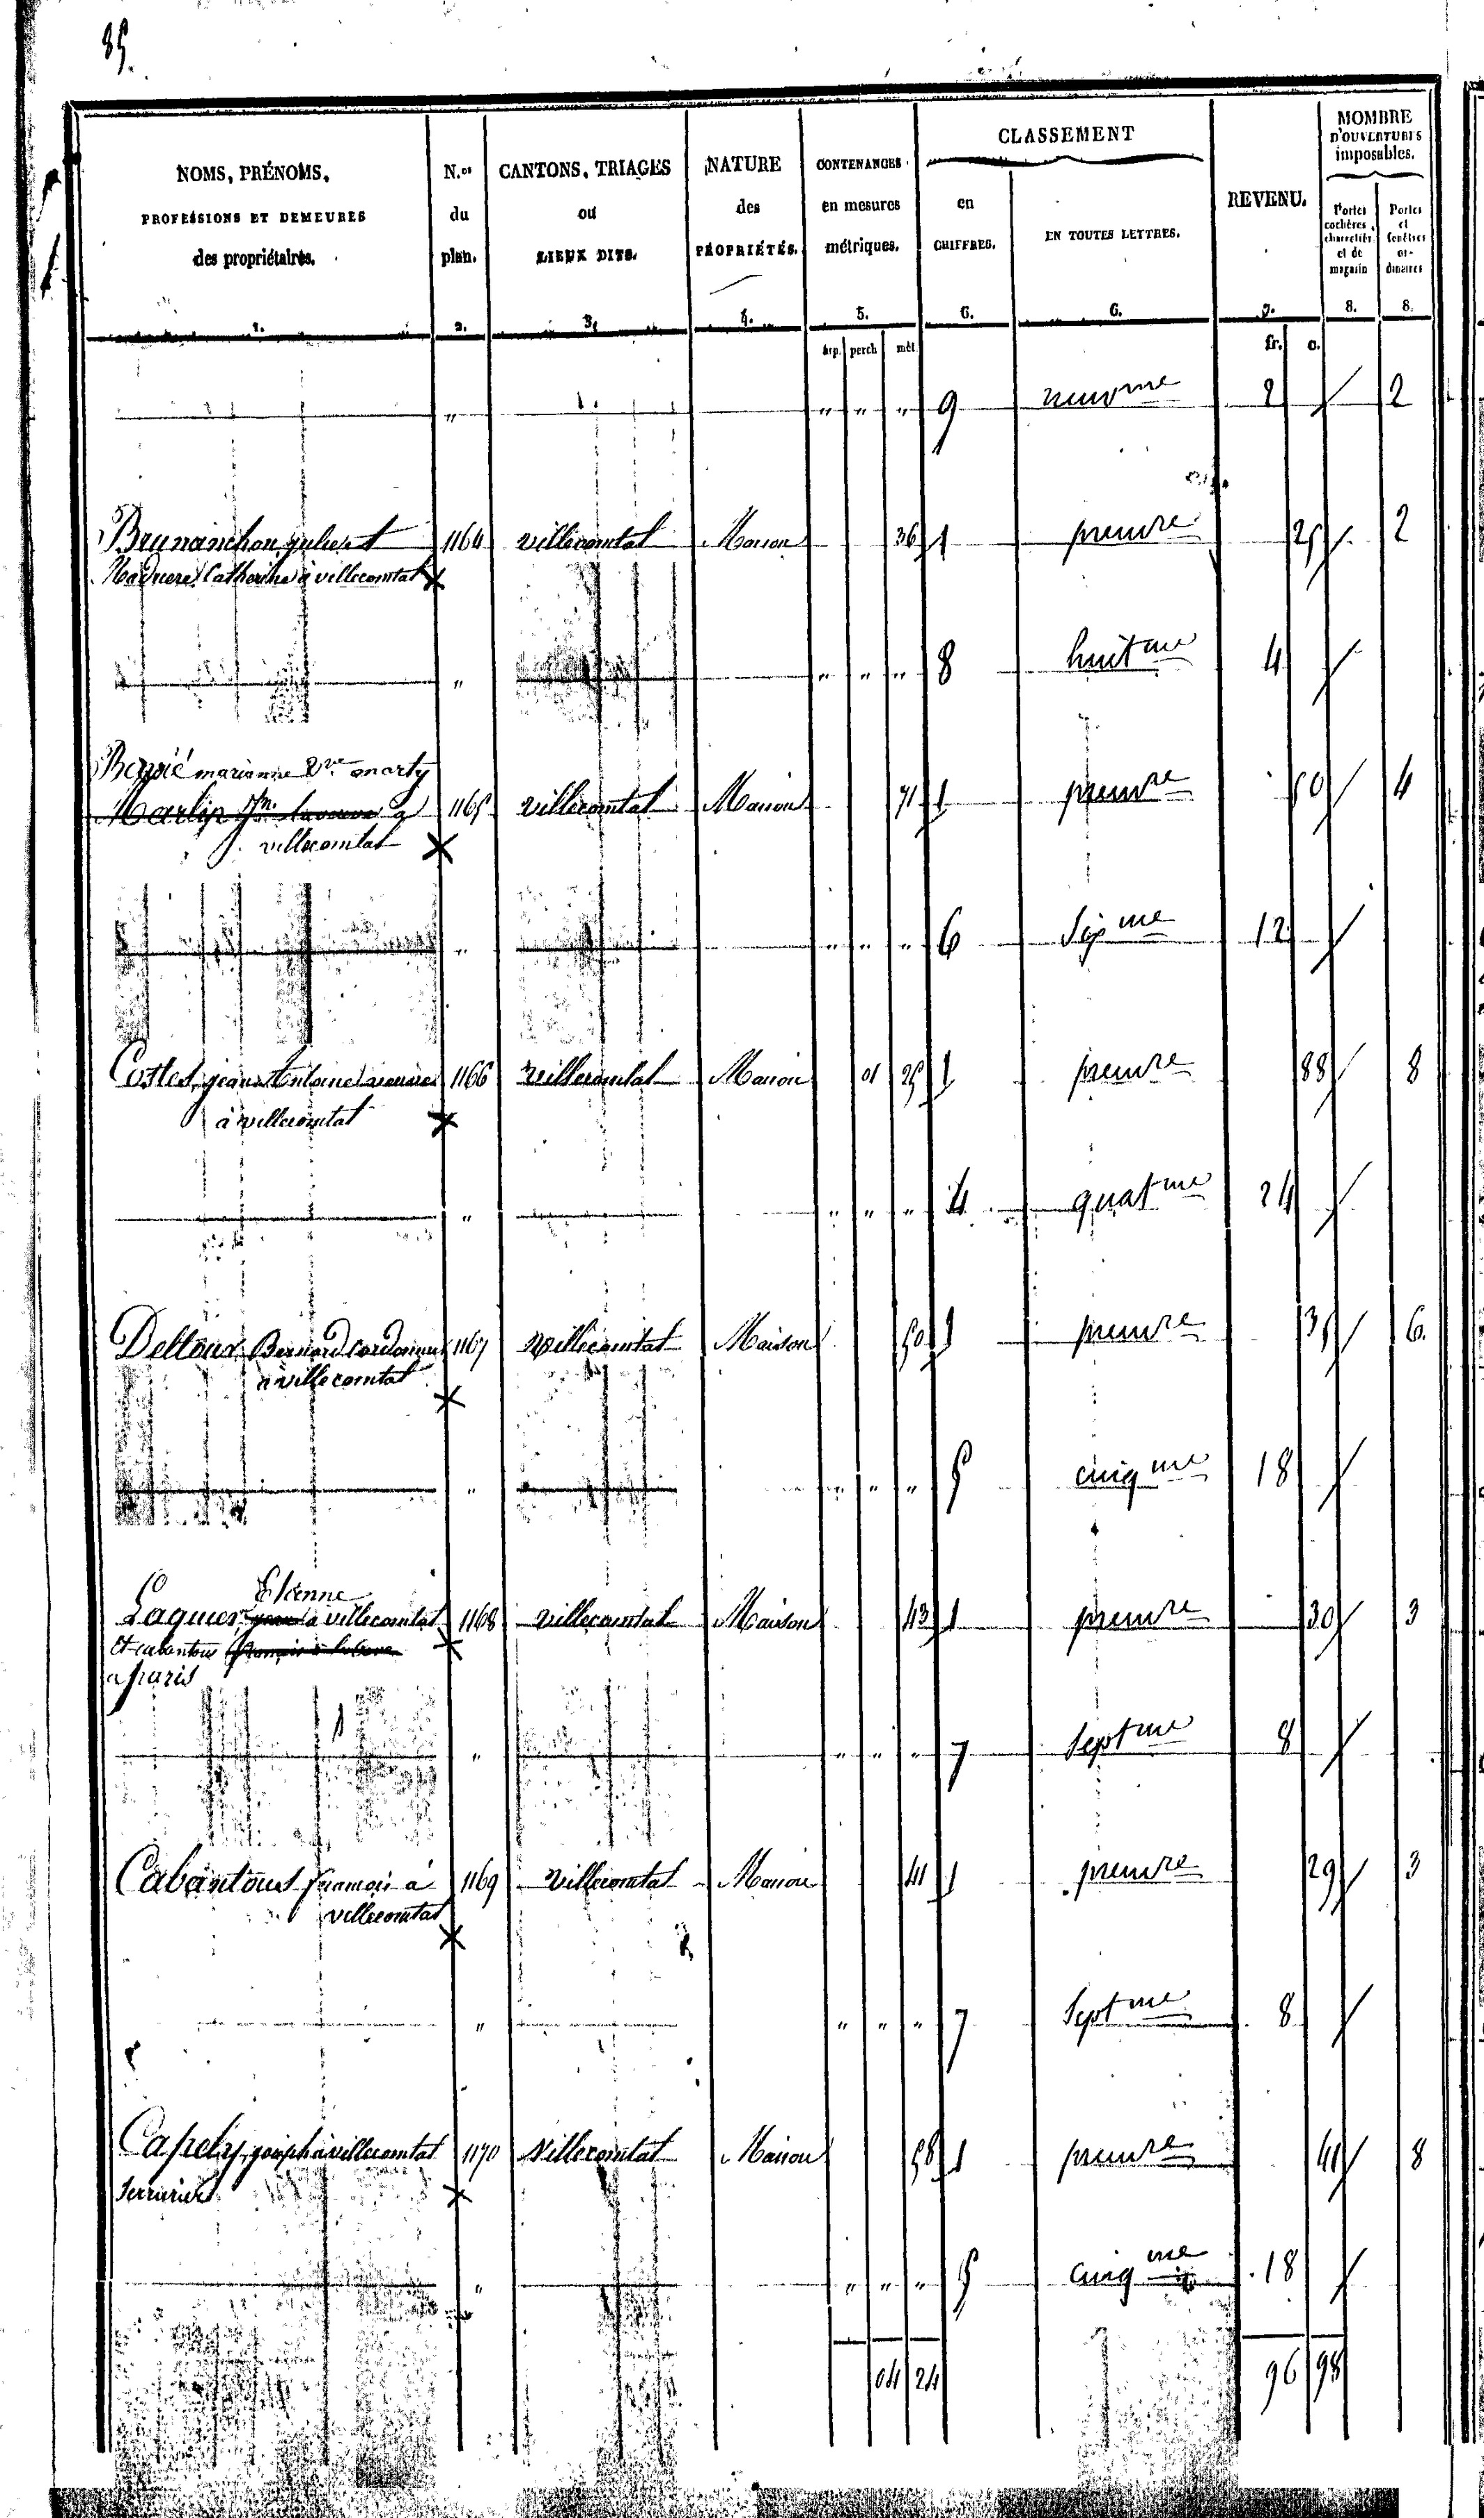 85.
NOMS, PRÉNOMS,
PROFESSIONS ET DEMEURES
des propriétaires.
1.
N.os
du
plan.
2.
CANTONS, TRIAGES
ou
LIEUX DITS.
3.
NATURE
des
PROPRIÉTÉS.
4.
CONTENANCES
en mesures
métriques.
5.
CLASSEMENT
en
CHIFFRES.
6.
EN TOUTES LETTRES.
6.
REVENU.
7.
NOMBRE
D'OUVERTURES
imposables.
Portes
cochères,
charretièr.
et de
magasin
8.
Portes
et
fenêtres
or-
dinaires
8.
arp. perch mèt. fr. c.
" " " " 9 neuvme 2 / 2
1164 villecomtat Maison 36 1 premre 25 / 2
Catherine à villecomtat X
" " " " 8 huitme 4 /
marianne Vve marty
1165 villecomtat Maison 71 1 premre 50 / 4
villecomtat X
" " " " 6 Sixme 12 /
Costes jean Antoine 1166 villecomtat Maison 01 25 1 premre 88 / 8
à villecomtat X
" " " " 4 quatme 24 /
Deltour Bernard Cordonnier 1167 villecomtat Maison 50 1 premre 35 / 6.
à villecomtat X
" " " " 5 cinqme 18 /
Etienne
Laquier jean à villecomtat 1168 villecomtat Maison 43 1 premre 30 / 3
Et cabantous X
a paris
" " " " 7 Septme 8 /
Cabantous francois à 1169 villecomtat Maison 41 1 premre 29 / 3
villecomtat X
" " " " 7 Septme 8 /
Capely joseph à villecomtat 1170 Villecomtat Maison 58 1 premre 41 / 8
Serrurier X
" " " " 5 cinqme 18 /
04 24 96 98